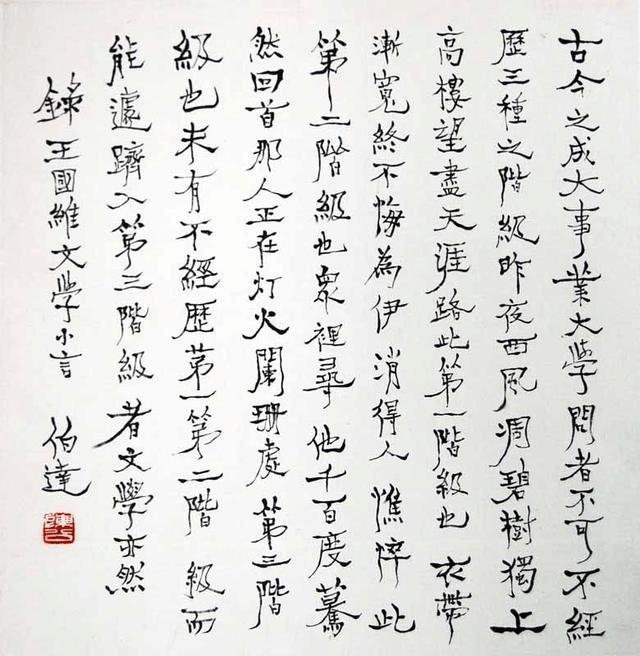 古今之成大事業大学問者不可不經
歷三種之階級昨夜西风凋碧樹獨上
高樓望盡天涯路此第一階級也衣帶
漸寬終不悔為伊消得人憔悴此
第二階級也衆裡尋他千百度驀
然回首那人正在灯火闌珊處第三階
級也未有不經歷苐一第二階級而
能遽躋入第三階級者文学亦然
錄王國維文学小言 伯達